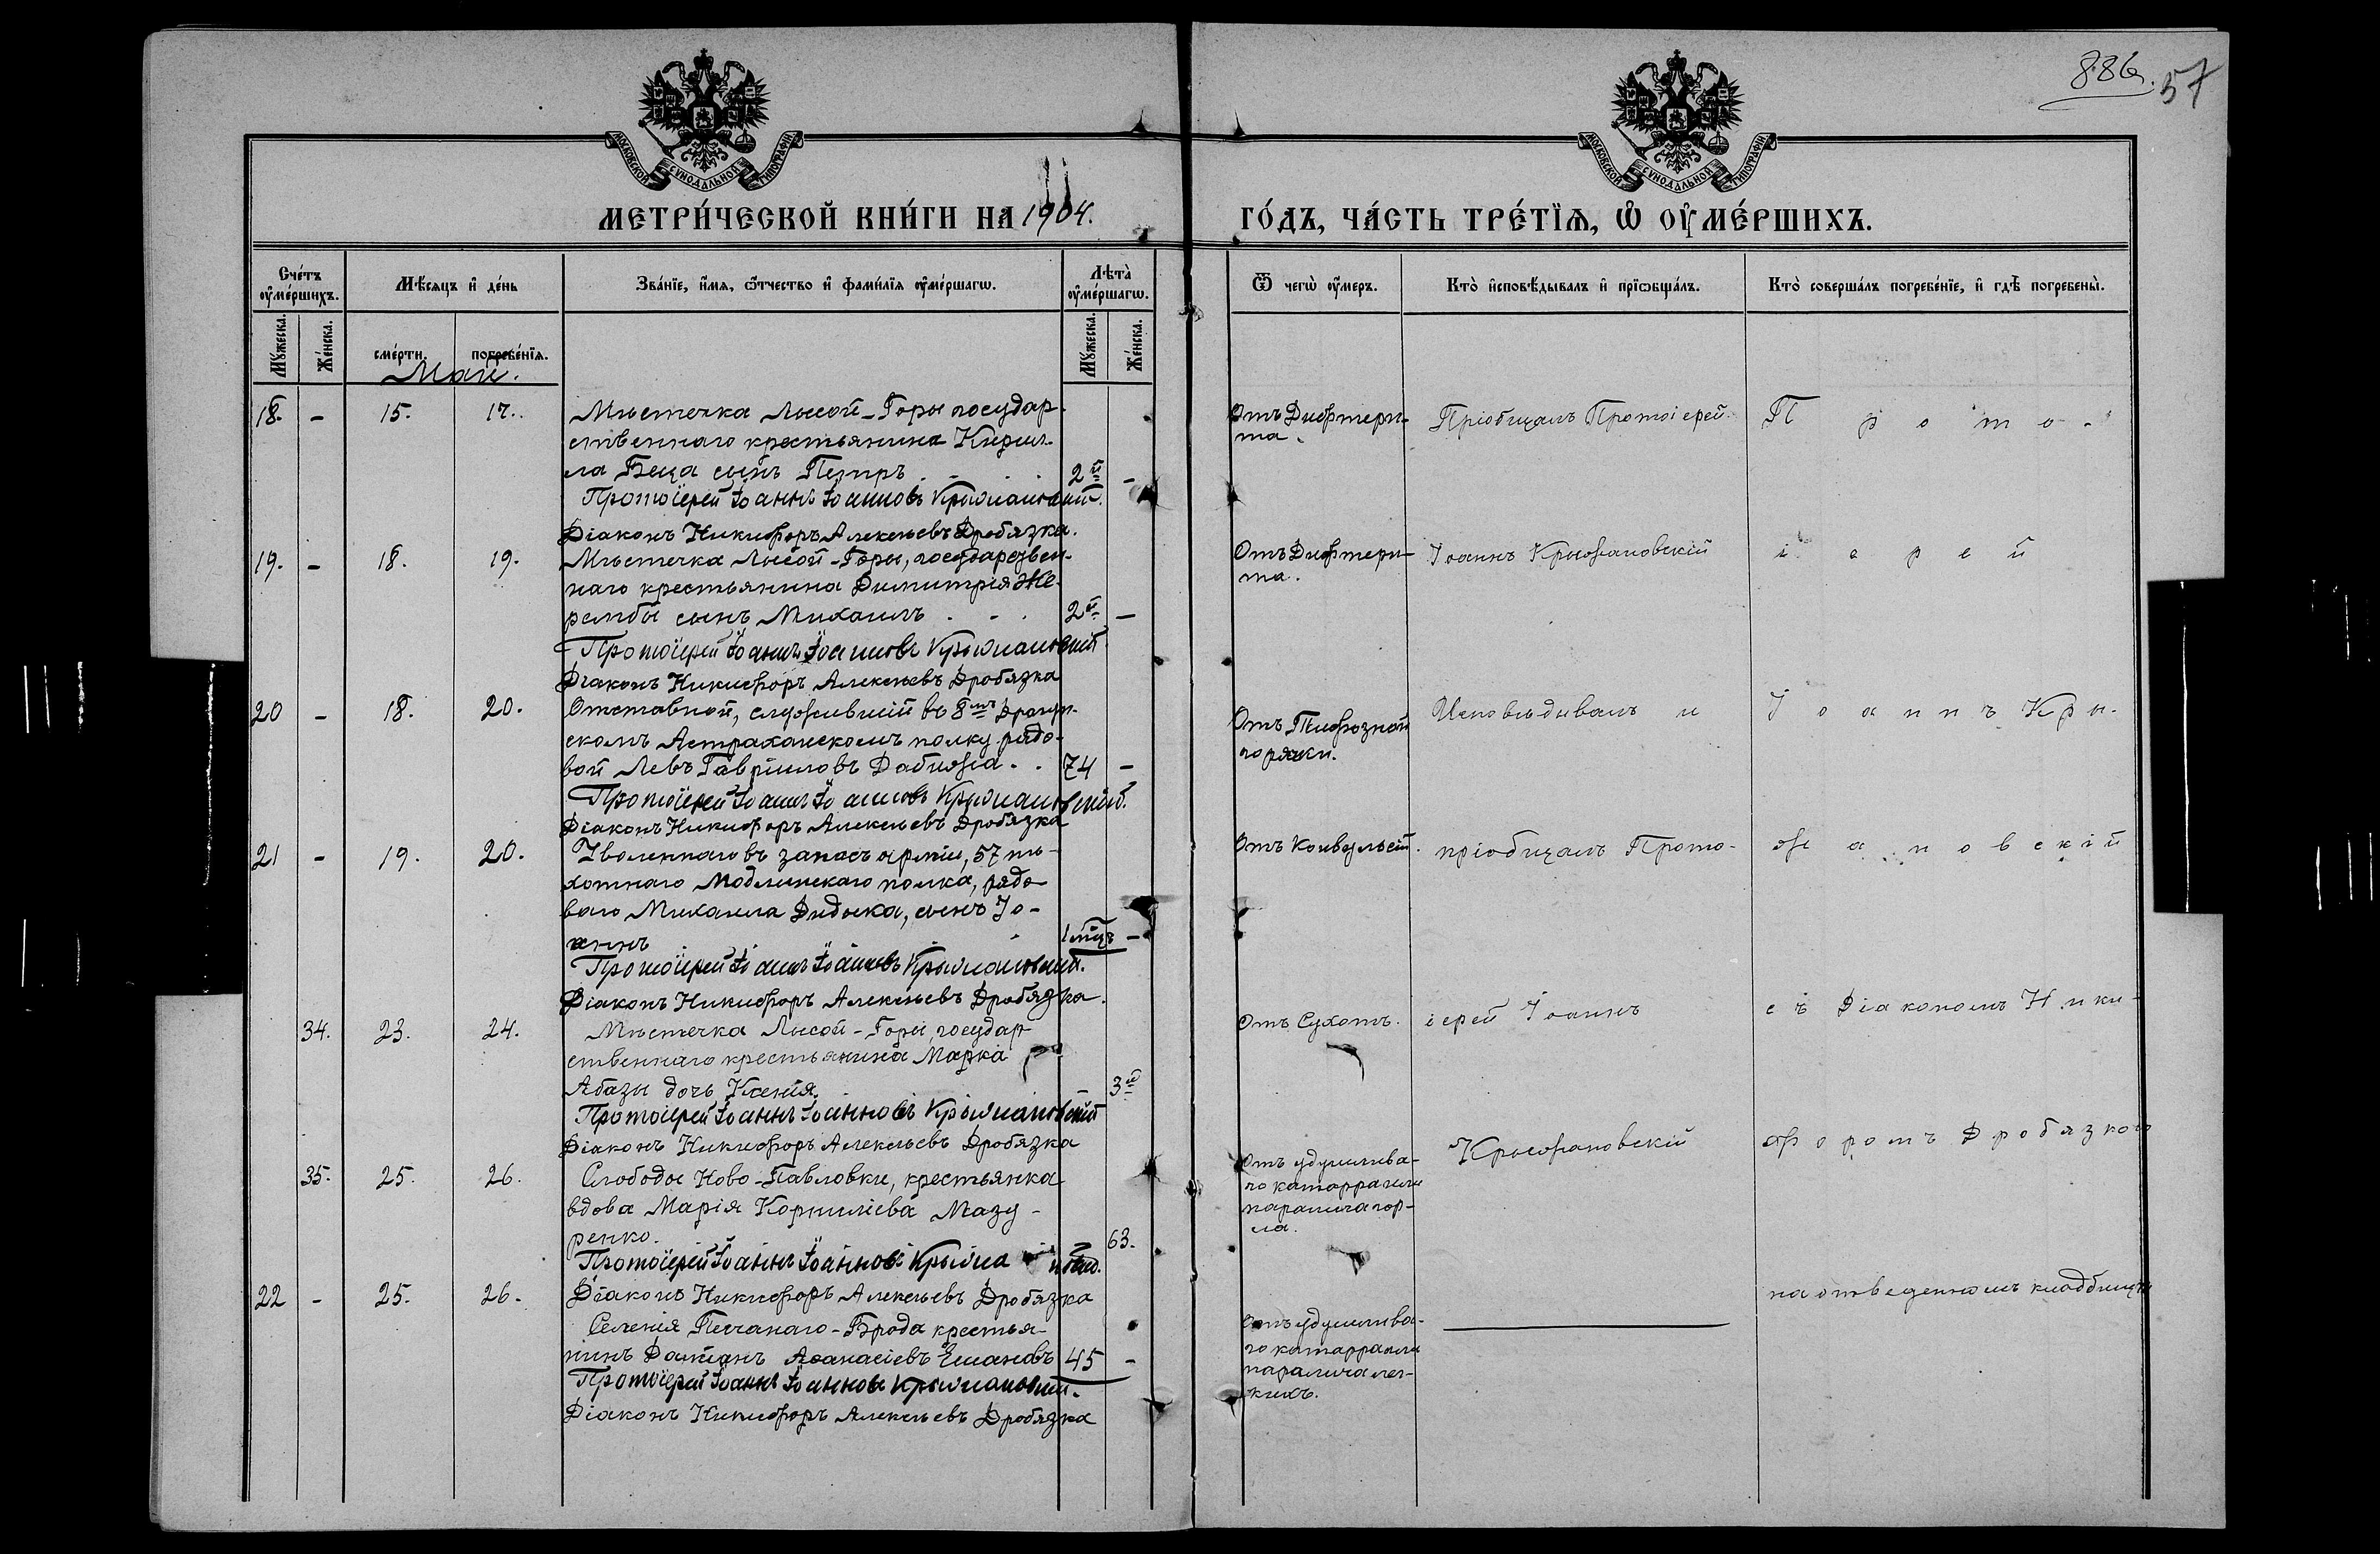 886. 57
МОСКОВСКОЙ СѴНОДАЛЬНОЙ ТИПОГРАФІИ
МОСКОВСКОЙ СѴНОДАЛЬНОЙ ТИПОГРАФІИ
МЕТРИ́ЧЕСКОЙ КНИ́ГИ НА 1904. ГО́ДЪ, ЧА́СТЬ ТРЕ́ТЇѦ, Ѡ҆ ОУ҆МЕ́РШИХЪ.
Сче́тъ оу҆ме́ршихъ.
Мѣ́сяцъ и҆ де́нь
Зва́нїе, и҆́мя, ѻ҆́тчество и҆ фами́лїя оу҆ме́ршагѡ.
Лѣта̀ оу҆ме́ршагѡ.
Ѿ чегѡ̀ оу҆́меръ.
Кто̀ и҆сповѣ́дывалъ и҆ прїѡбща́лъ.
Кто̀ соверша́лъ погребе́нїе, и҆ гдѣ̀ погребены̀.
Му́жеска.
Же́нска.
сме́рти.
погребе́нїя.
Му́жеска.
Же́нска.
Май.
18. - 15. 17. Мѣстечка Лысой-Горы государ-
ственнаго крестьянина Кирил-
ла Беца сынъ Петръ 2й -
Протоіерей Іоаннъ Іоанновъ Крыжановскій.
Діаконъ Никифоръ Алексѣевъ Дробязка.
Отъ Дифтери-
та.
Пріобщалъ Протоіерей
Прото-
19. - 18. 19. Мѣстечка Лысой-Горы, государствен-
наго крестьянина Димитрія Же-
ребы сынъ Михаилъ 2й -
Протоіерей Іоаннъ Іоанновъ Крыжановскій
Діаконъ Никифоръ Алексѣевъ Дробязка
Отъ Дифтери-
та.
Іоаннъ Крыжановскій
іерей
20 - 18. 20. Отставной, служившій въ 8мъ Драгун-
скомъ Астраханскомъ полку рядо-
вой Левъ Гавріиловъ Дабижа 74 -
Протоіерей Іоаннъ Іоанновъ Крыжановскій.
Діаконъ Никифоръ Алексѣевъ Дробязка
Отъ Тифозной
горячки.
Исповѣдывалъ и
Іоаннъ Кры-
21 - 19. 20. Уволеннаго въ запасъ арміи, 57 пѣ-
хотнаго Модлинскаго полка, рядо-
ваго Михаила Дидыка, сынъ Іо-
аннъ 1 мѣц. -
Протоіерей Іоаннъ Іоанновъ Крыжановскій.
Діаконъ Никифоръ Алексѣевъ Дробязка.
Отъ Конвульсій.
пріобщалъ Прото-
жановскій
34. 23. 24. Мѣстечка Лысой-Горы, государ-
ственнаго крестьянина Марка
Абазы дочь Ксенія. 3й
Протоіерей Іоаннъ Іоанновъ Крыжановскій
Діаконъ Никифоръ Алексѣевъ Дробязка
Отъ Сухотъ.
іерей Іоаннъ
съ Діакономъ Ники-
35. 25. 26. Слободы Ново-Павловки, крестьянка
вдова Марія Корниліева Мазу-
ренко. 63.
Протоіерей Іоаннъ Іоанновъ Крыжановск.
Діаконъ Никифоръ Алексѣевъ Дробязка
Отъ удушлива-
го катарра или
паралича гор-
ла.
Крыжановскій
форомъ Дробязкою
22 - 25. 26. Селенія Песчанаго-Брода крестья-
нинъ Даміанъ Аѳанасіевъ 45 -
Протоіерей Іоаннъ Іоанновъ Крыжановскій.
Діаконъ Никифоръ Алексѣевъ Дробязка
Отъ удушлива-
го катарра или
паралича лег-
кихъ.
на отведенномъ кладбищѣ